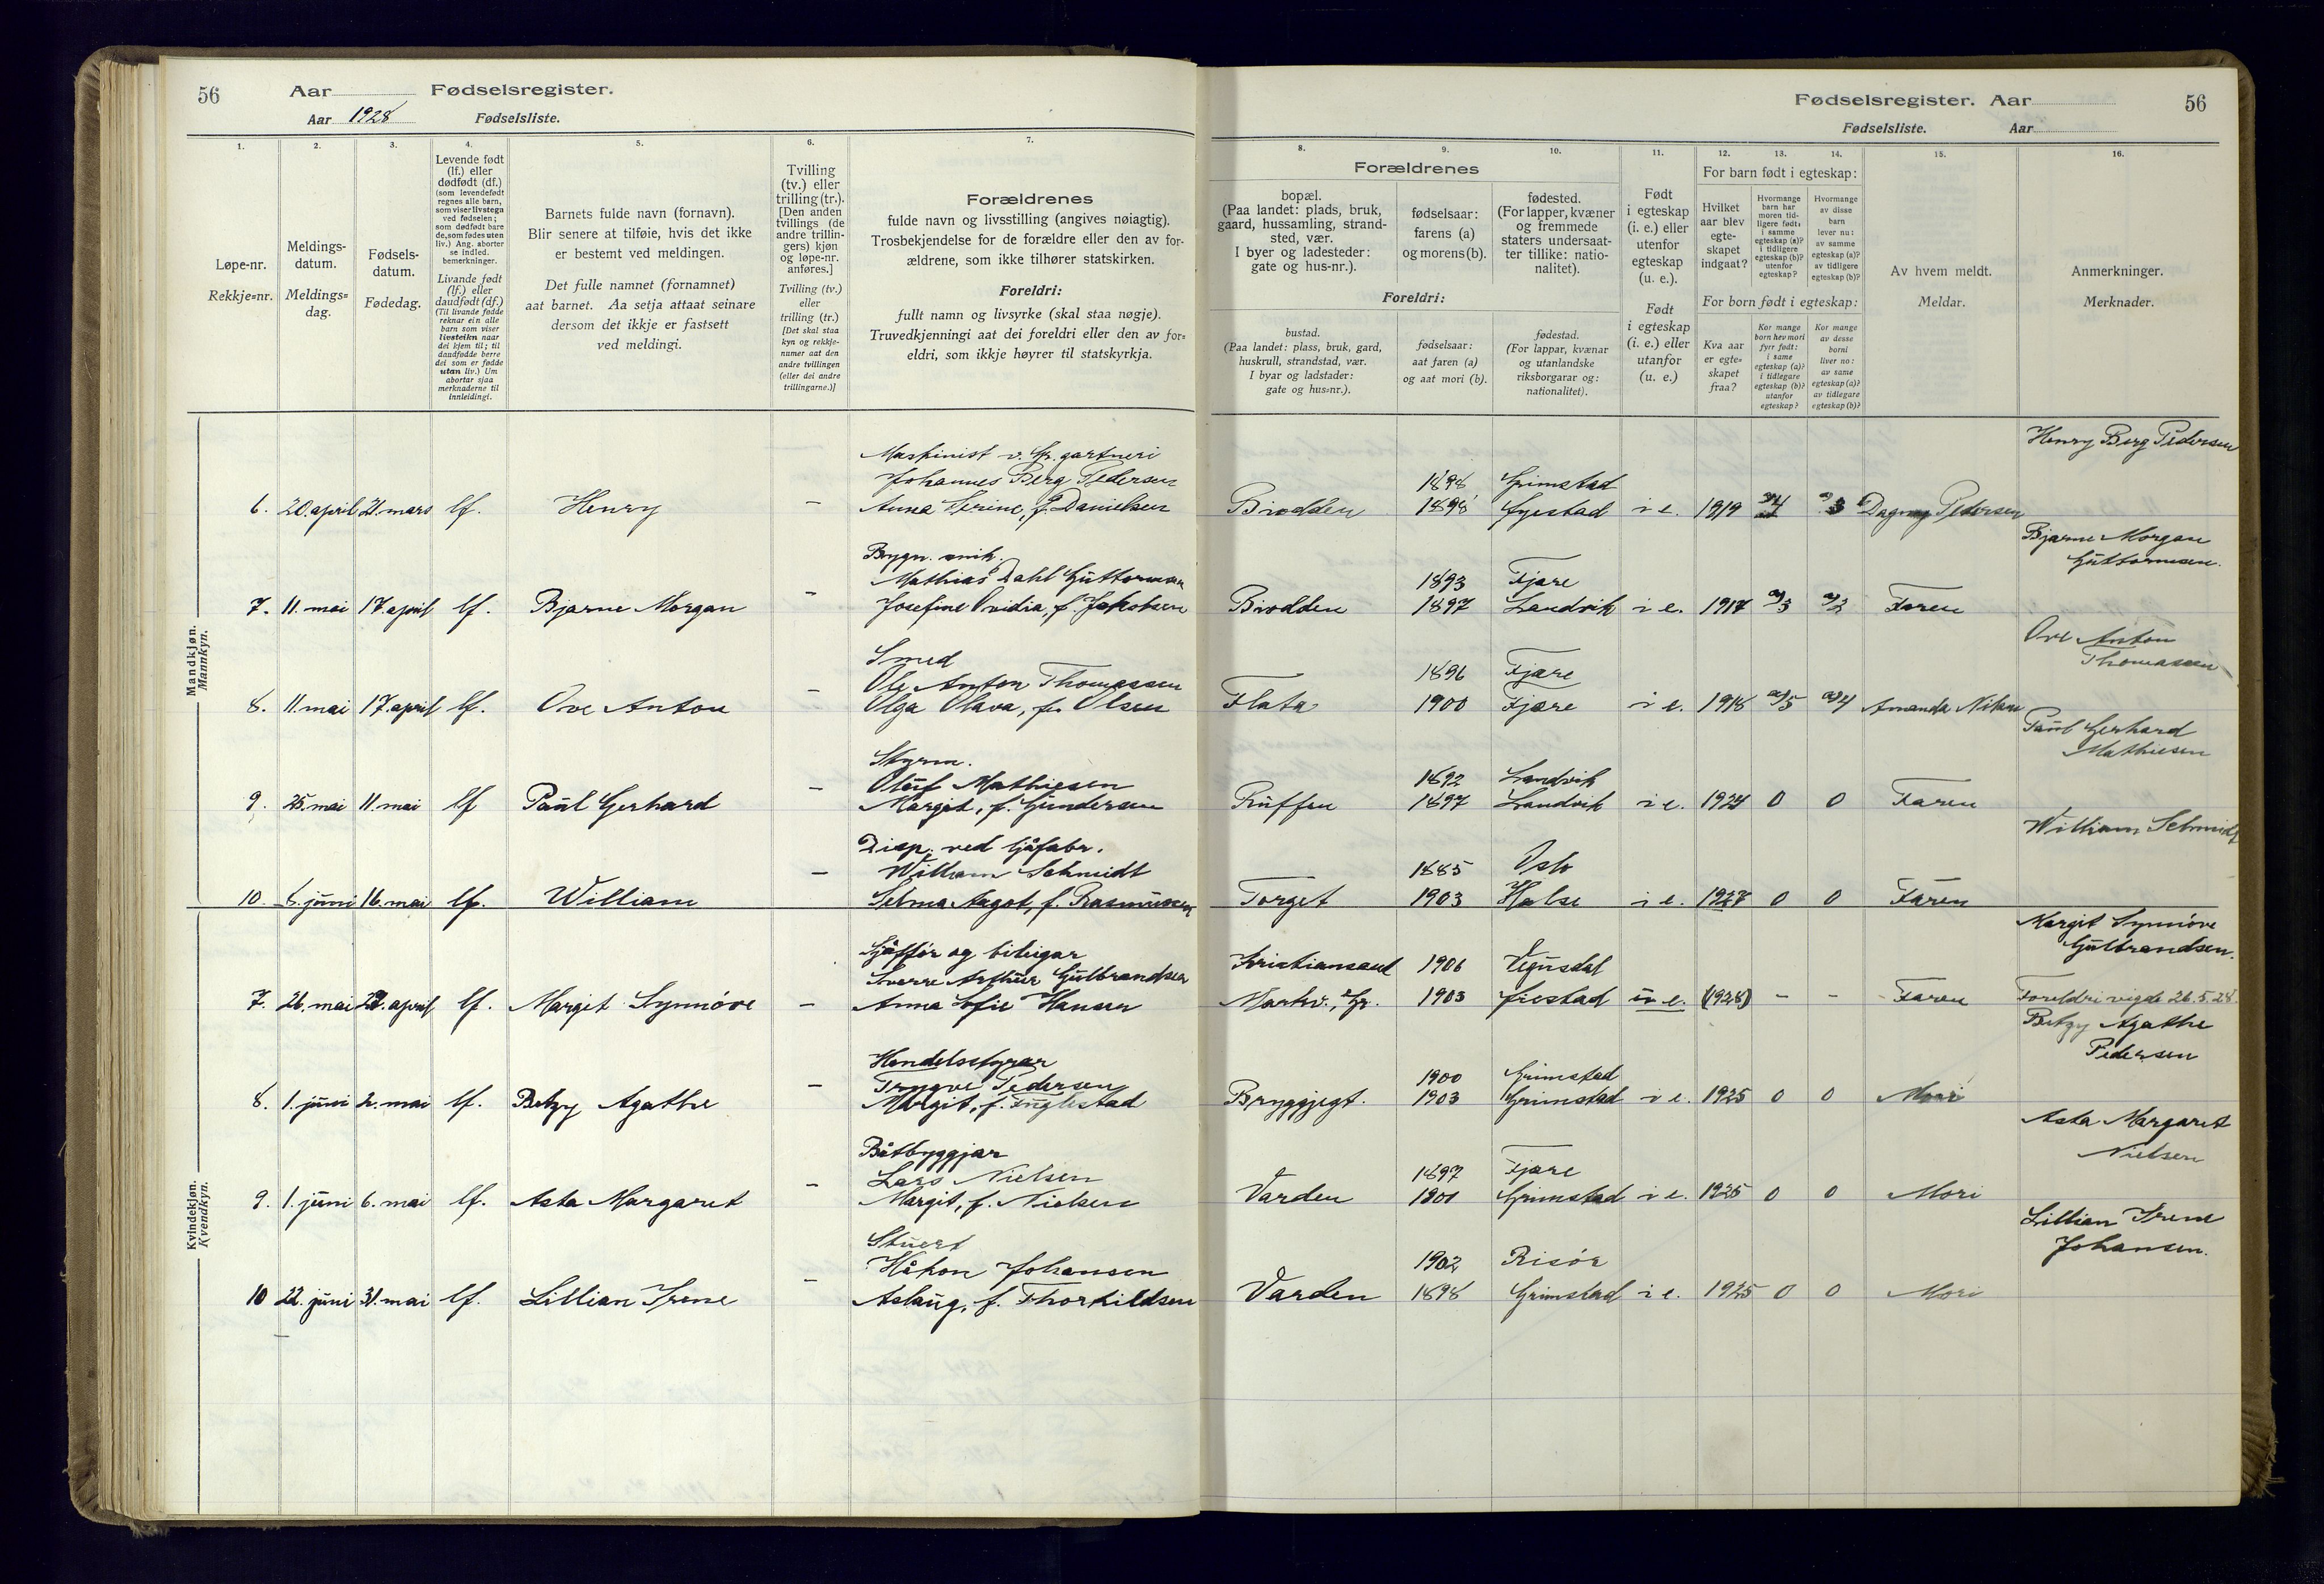 56
Aar
Fødselsregister.
Aar 1928
Fødselsliste.
1.
Løpe-nr.
Rekkje=nr.
2.
Meldings-
datum.
Meldings=
dag.
3.
Fødsels-
datum.
Fødedag.
4.
Levende født
(lf.) eller
dødfødt (df.)
(som levendefødt
regnes alle barn,
som viser livstegn
ved fødselen;
som dødfødt bare
de, som fødes uten
liv.) Ang. aborter
se indled.
bemerkninger.
Livande født
(lf.) eller
daudfødt (df.)
(Til livande fødde
reknar ein alle
barn som viser
livsteikn naar
dei kjem til; til
daudfødde berre
dei som er fødde
utan liv.) Um
abortar sjaa
merknaderne til
innleidingi.
5.
Barnets fulde navn (fornavn).
Blir senere at tilføie, hvis det ikke
er bestemt ved meldingen.
Det fulle namnet (fornamnet)
aat barnet. Aa setja attaat seinare
dersom det ikkje er fastsett
ved meldingi.
6.
Tvilling
(tv.) eller
trilling (tr.).
[Den anden
tvillings (de
andre trillin-
gers) kjøn
og løpe-nr.
anføres.]
Tvilling (tv.)
eller
trilling (tr.)
[Det skal staa
kyn og rekkje-
numer aat den
andre tvillingen
(eller dei andre
trillingarne.)]
7.
Forældrenes
fulde navn og livsstilling (angives nøiagtig).
Trosbekjendelse for de forældre eller den av for-
ældrene, som ikke tilhører statskirken.
Foreldri:
fullt namn og livsyrke (skal staa nøgje).
Truvedkjenningi aat dei foreldri eller den av for=
eldri, som ikkje høyrer til statskyrkja.
Fødselsregister. Aar
56
Fødselsliste.
Aar
8.
9.
10.
Forældrenes
bopæl.
(Paa landet: plads, bruk,
gaard, hussamling, strand-
sted, vær.
I byer og ladesteder:
gate og hus-nr.).
fødselsaar:
farens (a)
og morens (b).
fødested.
(For lapper, kvæner
og fremmede
staters undersaat-
ter tillike: natio-
nalitet).
Foreldri:
bustad.
(Paa landet: plass, bruk, gard,
huskrull, strandstad, vær.
I byar og ladstader:
gate og hus=nr.).
fødselsaar:
aat faren (a)
og aat mori (b).
fødestad.
(For lappar, kvænar
og utanlandske
riksborgarar og:
nationalitet).
11.
Født
i egteskap
(i. e.) eller
utenfor
egteskap
(u. e.).
Født
i egteskap
(i. e.) eller
utanfor
(u. e.)
12.
13.
14.
For barn født i egteskap:
Hvilket
aar blev
egte-
skapet
indgaat?
Hvormange
barn har
moren tid-
ligere født:
i samme
egteskap (a)?
i tidligere
egteskap (b)?
utenfor
egteskap?
Hvormange
av disse
barn
lever nu:
av samme
egteskap (a)?
av tidligere
egteskap (b)?
For born født i egteskap:
Kva aar
er egte=
skapet
fraa?
Kor mange
born hev mori
fyrr født:
i same
egteskap (a)?
i tidlegare
egteskap (b)?
utanfor
egteskap?
Kor mange
av desse
borni
liver no:
av same
egteskap (a)?
av tidlegare
egteskap (b)?
15.
Av hvem meldt.
Meldar.
16.
Anmerkninger.
Merknader.
Mandkjøn.
Mannkyn.
Maskinist v. Gr. gartneri
Johannes Berg Pedersen
6. 20. april 21. mars lf. Henry – Anna Serine, f. Danielsen
Henry Berg Pedersen
1898 Grimstad
Brodden 1898 i e. 1919 a/4 a/3 Dagny Pedersen
Bygn. snik.
Mathias Dahl Guttormsen
7. 11. mai 17. april lf. Bjarne Morgan – Josefine Ovidia, f. Jakobsen
Bjarne Morgan
Guttormsen.
1893 Fjære
Brodden 1897 Landvik i e. 1917 a/3 a/2 Faren
Smed
Ole Anton Thomassen
8. 11. mai 17. april lf. Ove Anton – Olga Olava, f. Olsen
Ove Anton
Thomassen
1896 Fjære
Flata 1900 Fjære i e. 1918 a/5 a/4 Amanda Nilsen
Styrm.
Oluf Mathiesen
9. 25. mai 11. mai lf Paul Gerhard – Margit, f. Gundersen
Paul Gerhard
Mathiesen
1892 Landvik
Ruffen 1897 Landvik i e. 1924 0 0 Faren
Disp. ved
William Schmidt
10. 8. juni 16. mai lf. William – Selma Aagot, f. Rasmussen
William Schmidt
1885 Oslo
Torget 1903 Halse i e. 1927 0 0 Faren
Kvindekjøn.
Kvendkyn.
Sjåffør og bileigar
Sverre Arthur Gulbrandsen
7. 26. mai april lf. Margit Synnöve – Anna Sofie Hansen
Margit Synnöve
Gulbrandsen.
Kristiansand 1906 Vegusdal
Markv., Gr. 1903 e. (1928) - - Faren Foreldri vigde 26.5.28.
Handelsstyrar
Trygve Pedersen
8. 1. juni 2. mai lf. Betzy Agathe – Margit, f. Fuglestad
Betzy Agathe
Pedersen
1900 Grimstad
Bryggjegt. 1903 Grimstad i e. 1925 0 0 Mori
Båtbyggjar
Lars Nielsen
9. 1. juni 6. mai lf. Asta Margaret – Margit, f. Nielsen
Asta Margaret
Nielsen
1897 Fjære
Varden 1901 Grimstad i e. 1925 0 0 Mori
Stuert
Håkon Johansen
10 22. juni 31. mai lf. Lillian Irene – Aslaug, f. Thorkildsen
Lillian Irene
Johansen.
1902 Risör
Varden 1898 Grimstad i e. 1925 0 0 Mori